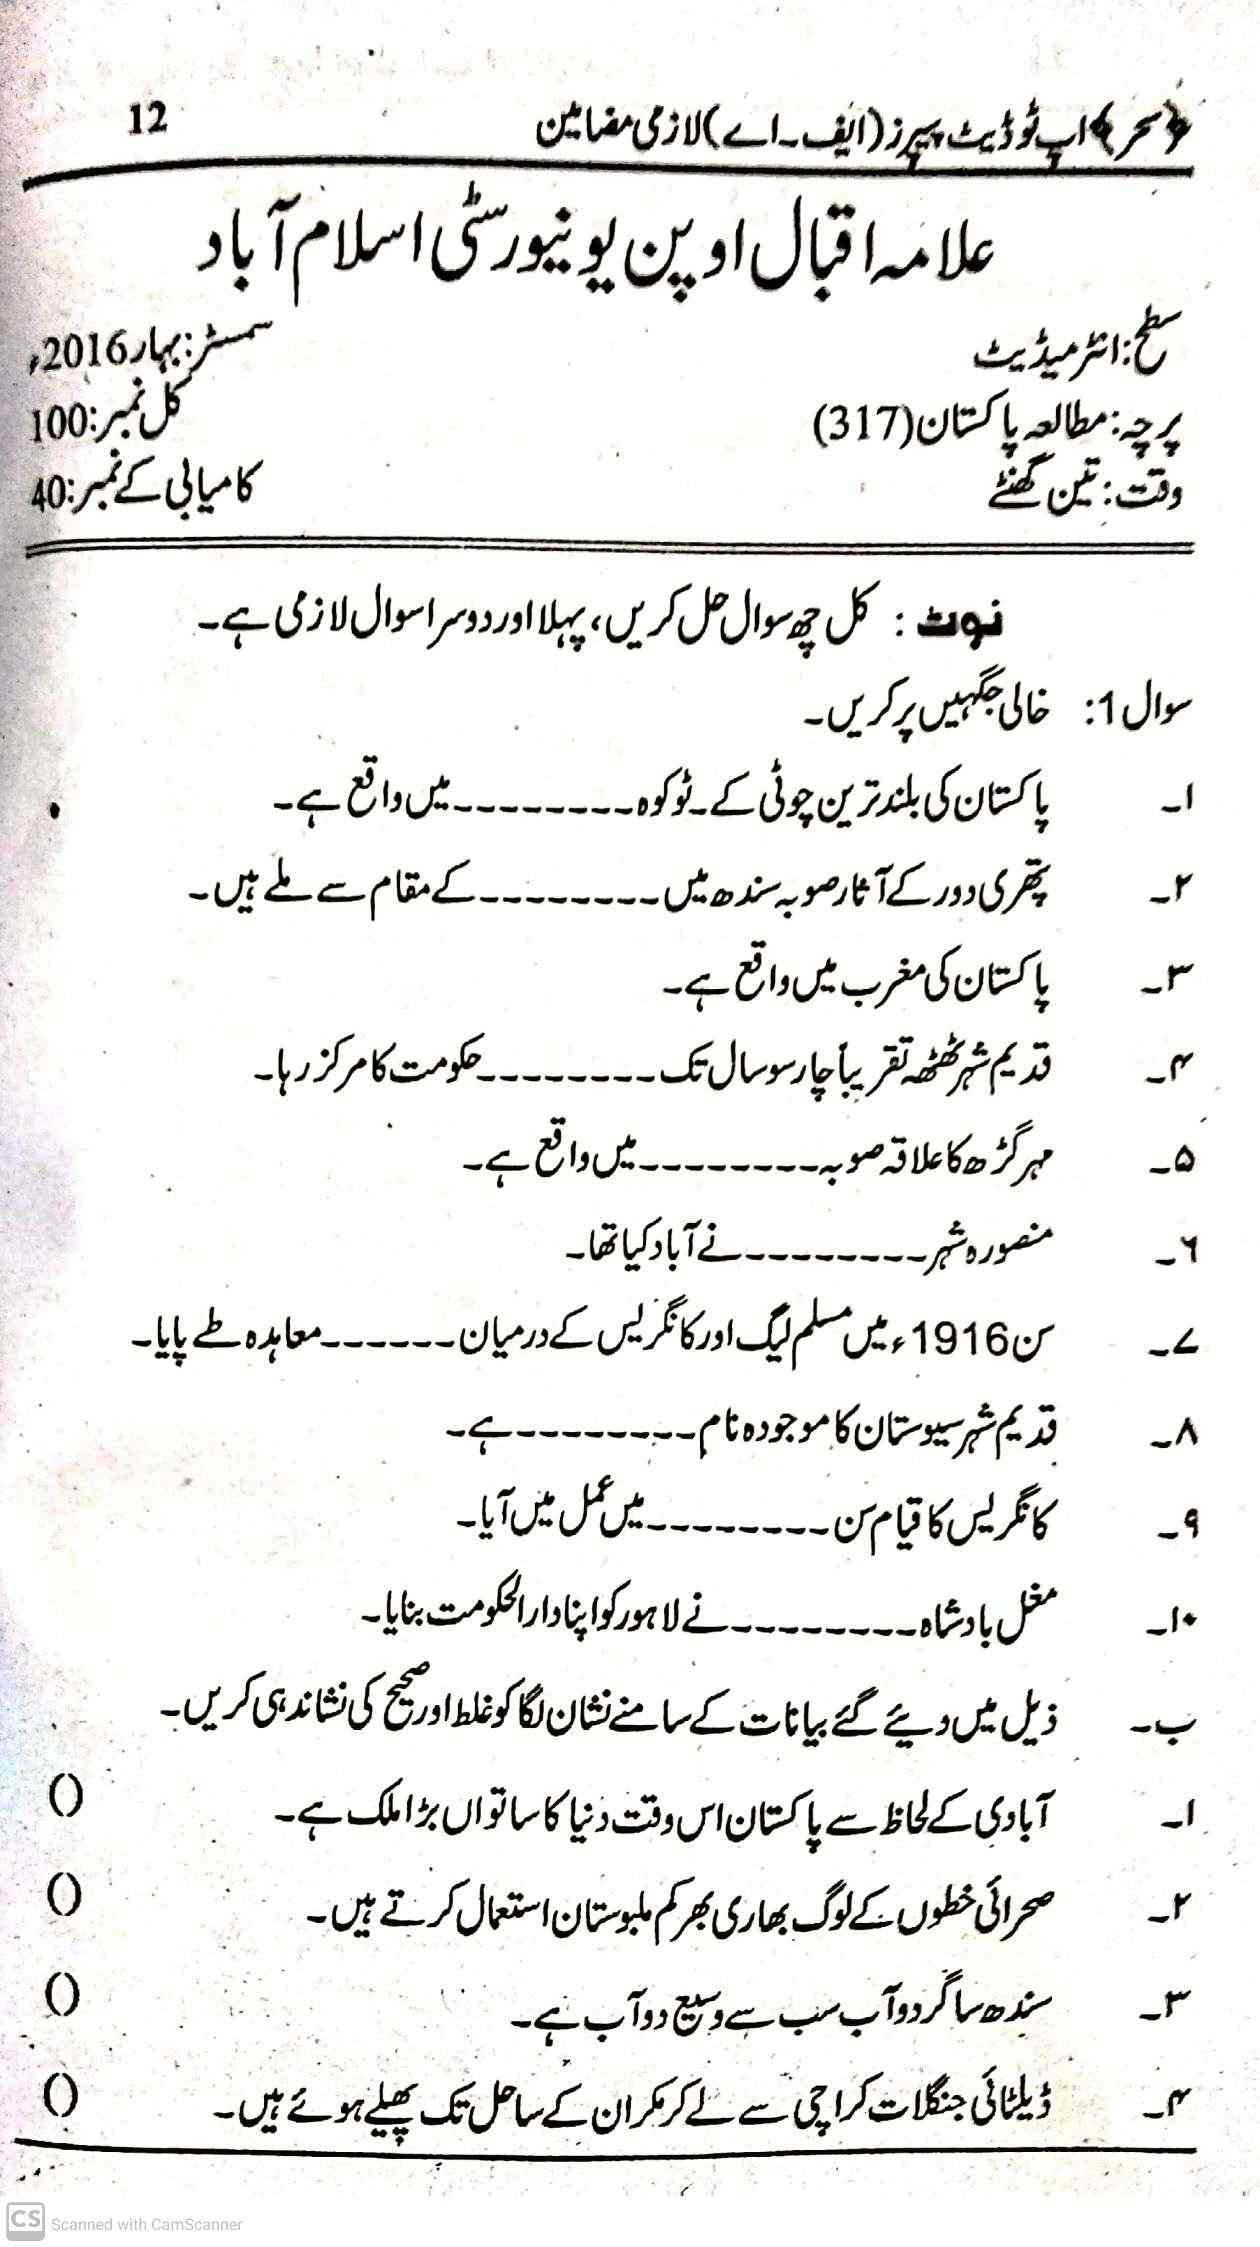 ﴿سحر﴾ اپ ٹو ڈیٹ پیپرز (ایف۔اے) لازمی مضامین 12
علامہ اقبال اوپن یونیورسٹی اسلام آباد
سطح: انٹرمیڈیٹ سمسٹر: بہار 2016ء
پرچہ: مطالعہ پاکستان (317) کل نمبر: 100
وقت: تین گھنٹے کامیابی کے نمبر: 40
نوٹ : کل چھ سوال حل کریں، پہلا اور دوسرا سوال لازمی ہے۔
سوال 1: خالی جگہیں پر کریں۔
۱۔ پاکستان کی بلند ترین چوٹی کے۔ٹو کوہ --------- میں واقع ہے۔
۲۔ پتھری دور کے آثار صوبہ سندھ میں --------- کے مقام سے ملے ہیں۔
۳۔ پاکستان کی مغرب میں واقع ہے۔
۴۔ قدیم شہر ٹھٹھہ تقریباً چار سو سال تک --------- حکومت کا مرکز رہا۔
۵۔ مہر گڑھ کا علاقہ صوبہ --------- میں واقع ہے۔
۶۔ منصورہ شہر --------- نے آباد کیا تھا۔
۷۔ سن 1916ء میں مسلم لیگ اور کانگریس کے درمیان ------- معاہدہ طے پایا۔
۸۔ قدیم شہر سیوستان کا موجودہ نام --------- ہے۔
۹۔ کانگریس کا قیام سن --------- میں عمل میں آیا۔
۱۰۔ مغل بادشاہ --------- نے لاہور کو اپنا دارالحکومت بنایا۔
ب۔ ذیل میں دیئے گئے بیانات کے سامنے نشان لگا کو غلط اور صحیح کی نشاندہی کریں۔
۱۔ آبادی کے لحاظ سے پاکستان اس وقت دنیا کا ساتواں بڑا ملک ہے۔ ()
۲۔ صحرائی خطوں کے لوگ بھاری بھر کم ملبوستان استعمال کرتے ہیں۔ ()
۳۔ سندھ ساگر دوآب سب سے وسیع دوآب ہے۔ ()
۴۔ ڈیلٹائی جنگلات کراچی سے لے کر مکران کے ساحل تک پھیلے ہوئے ہیں۔ ()
CS Scanned with CamScanner